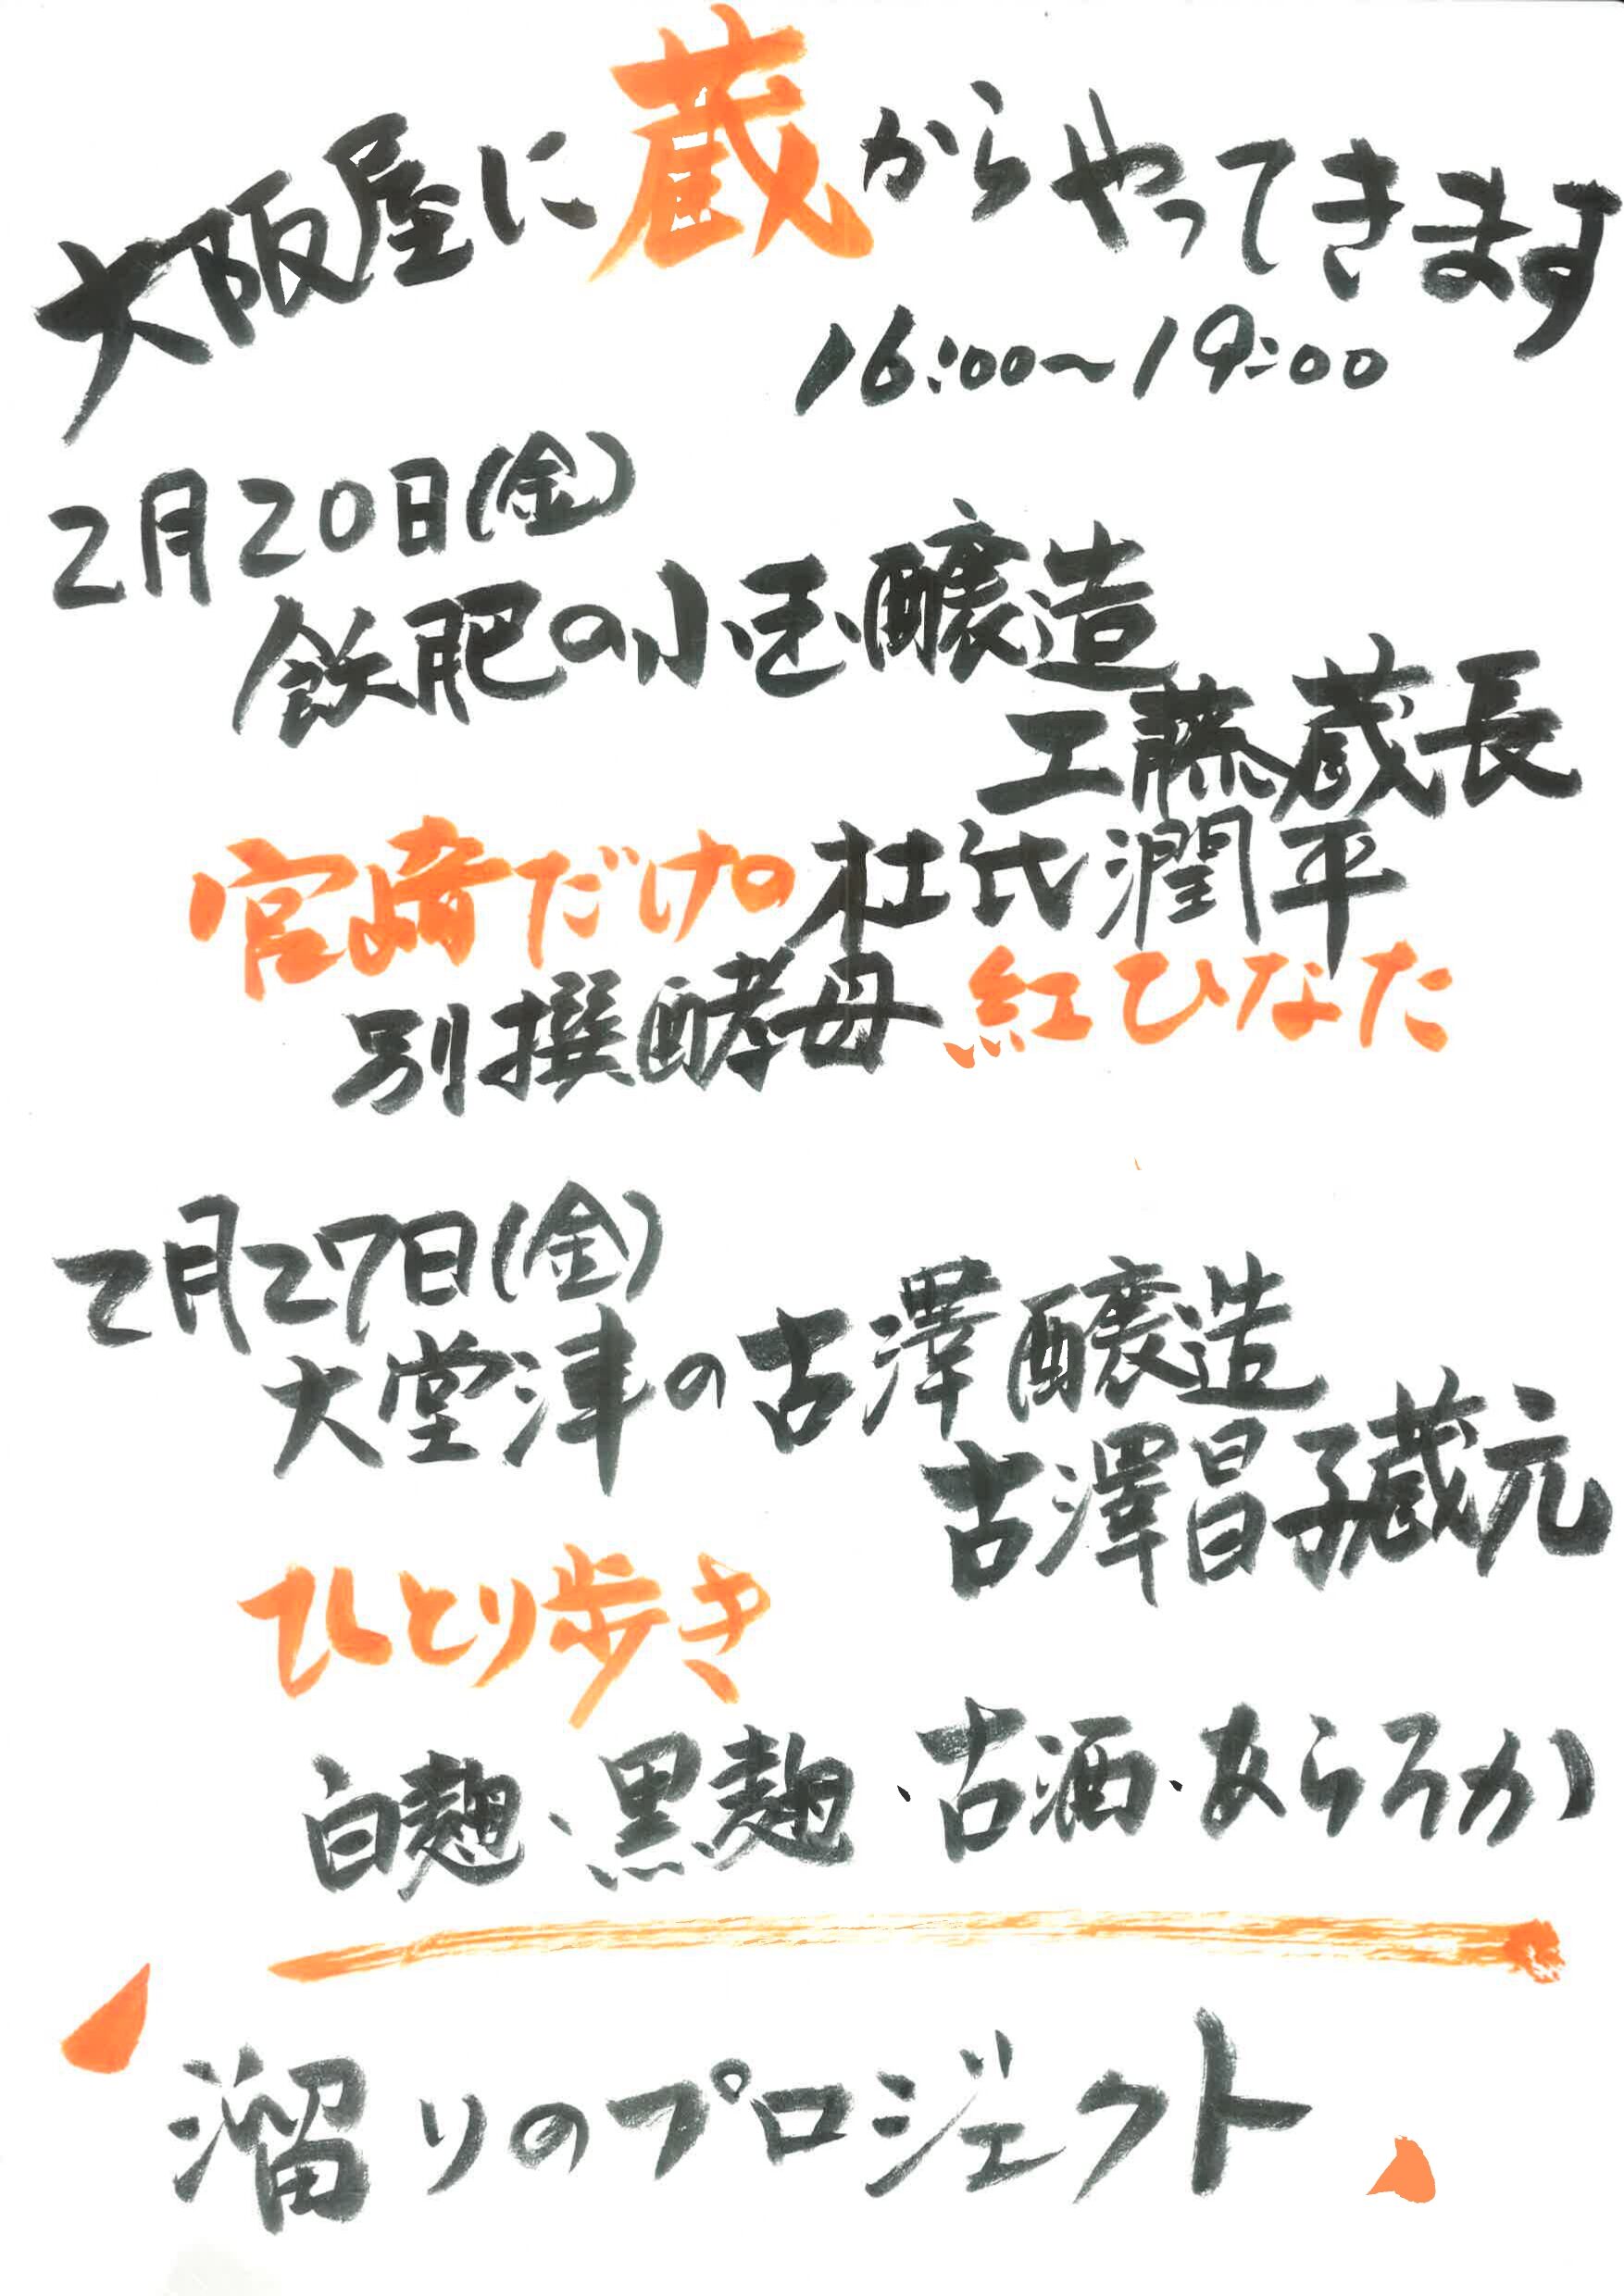 大阪屋に蔵からやってきます
16:00～19:00
2月20日(金)
飫肥の小玉醸造
工藤蔵長
宮崎だけの杜氏潤平
別撰酵母 紅ひなた
2月27日(金)
大堂津の古澤醸造
古澤昌子蔵元
ひとり歩き
白麹・黒麹・古酒・あらろか
溜りのプロジェクト